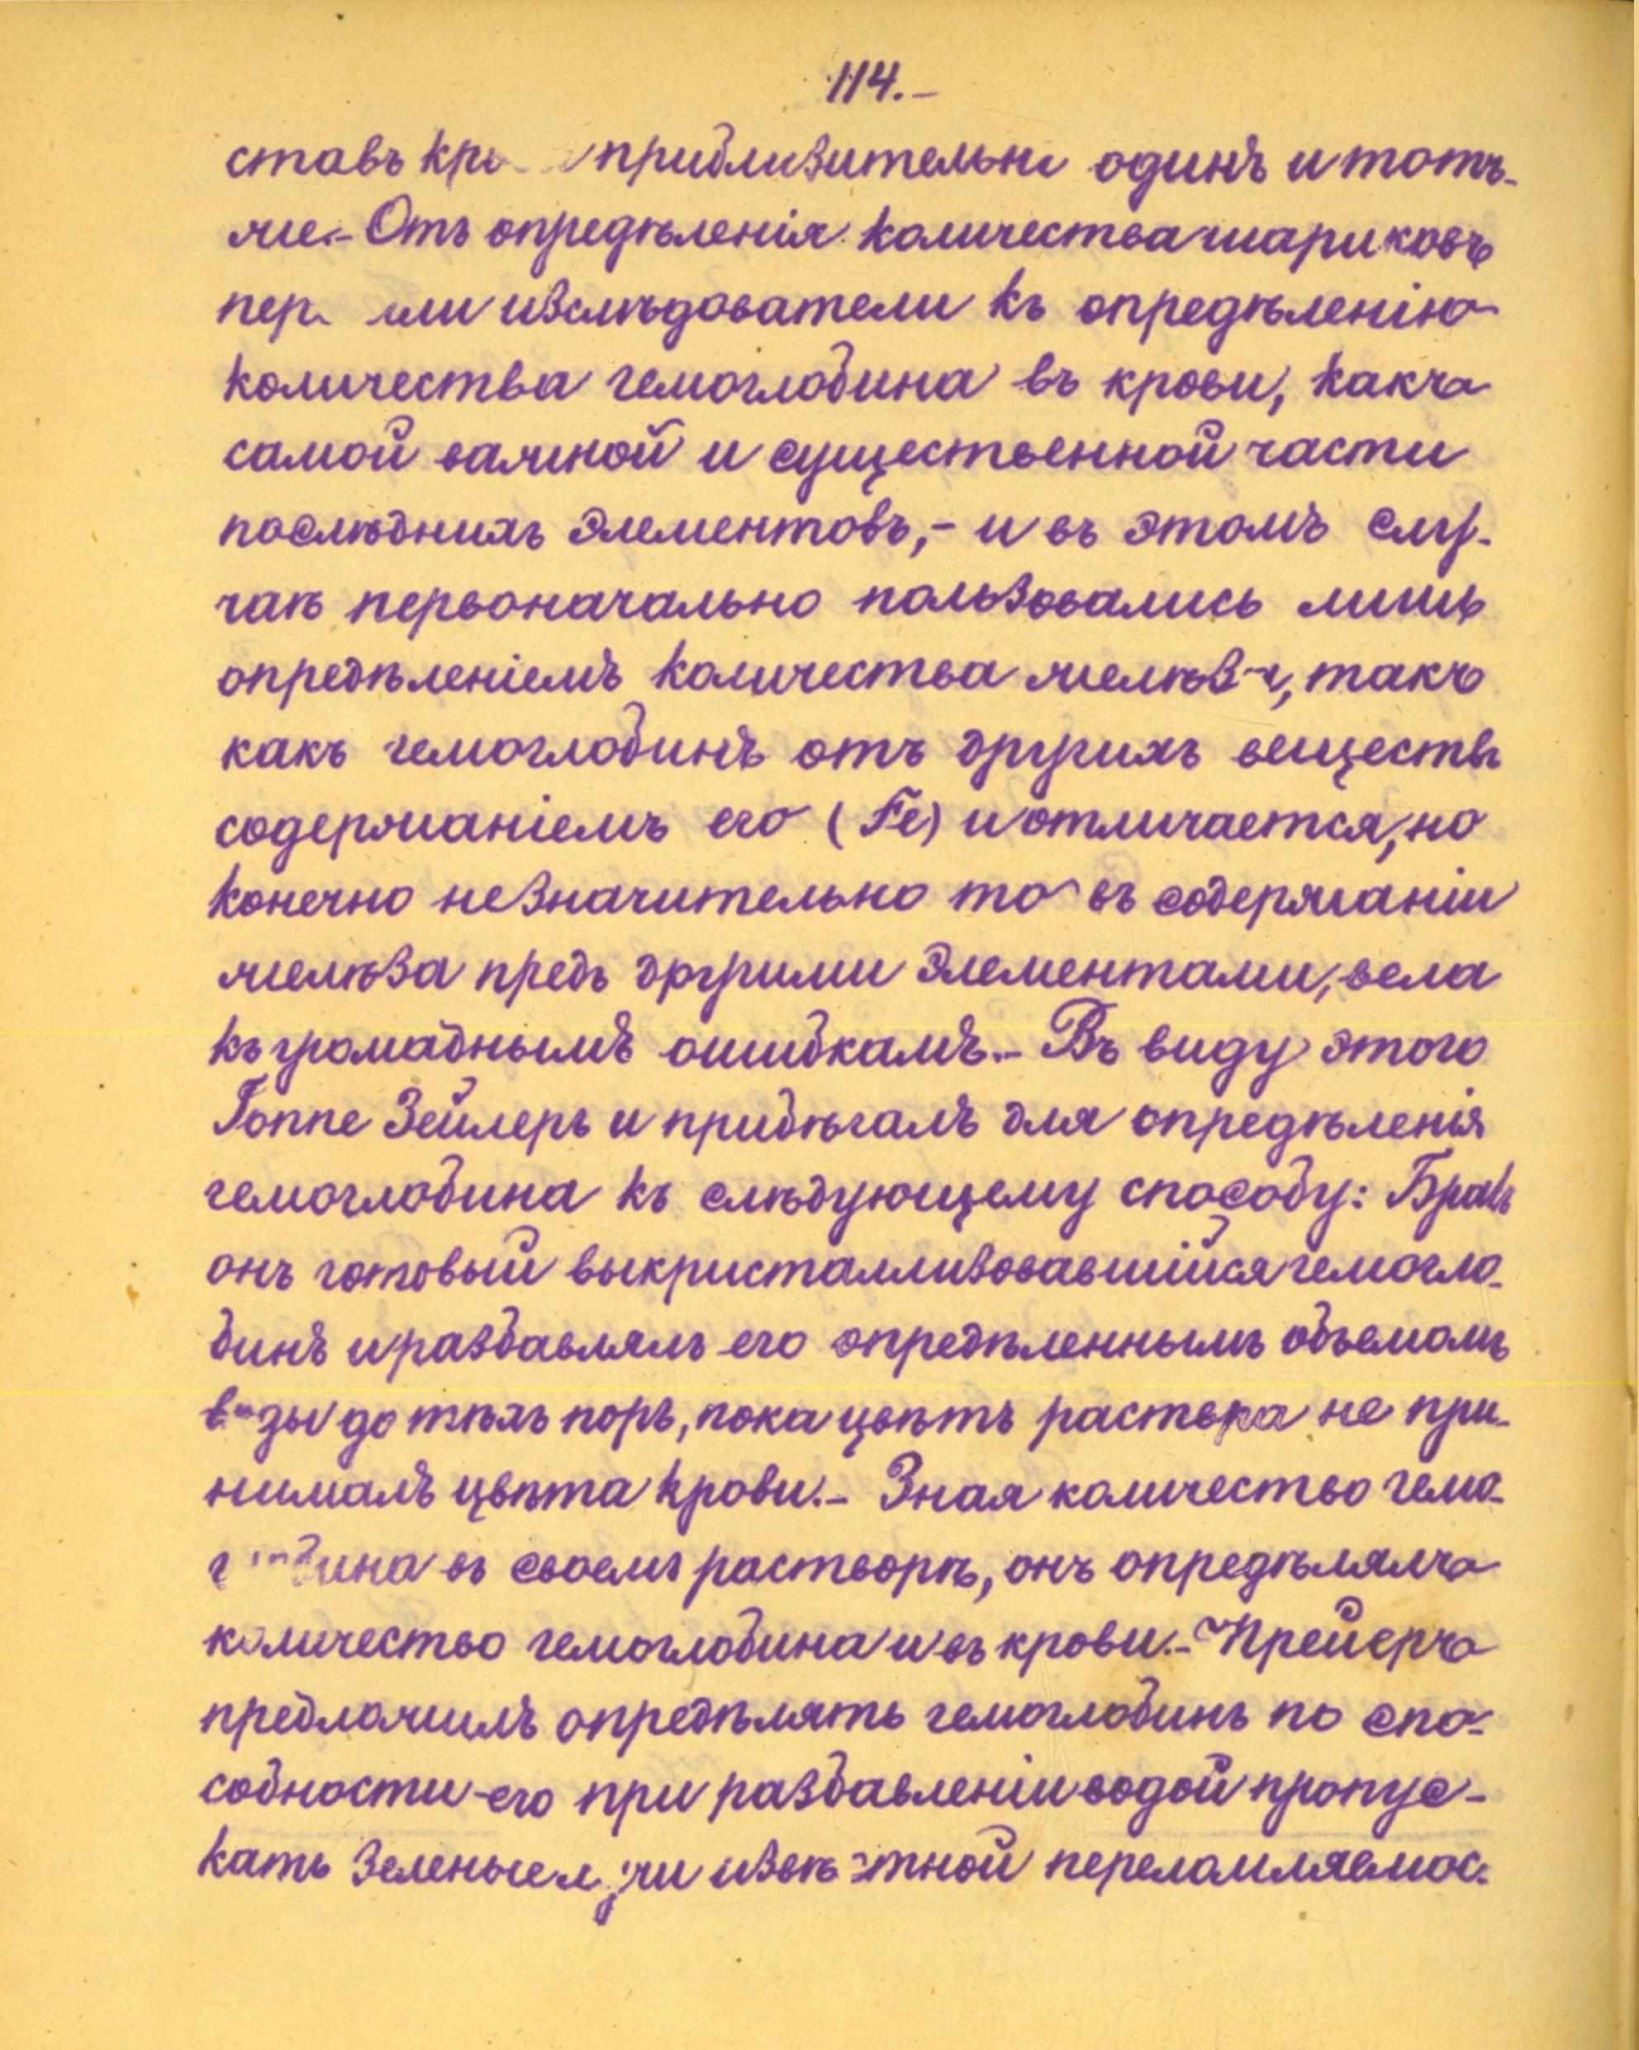 114.-
ставъ приблизительно одинъ и тотъ-
же.- Отъ опредѣленія количества шариковъ
изслѣдователи къ опредѣленію
количества гемоглобина въ крови, какъ
самой важной и существенной части
послѣднихъ элементовъ,- и въ этомъ слу-
чаѣ первоначально пользовались лишь
опредѣленіемъ количества желѣза, такъ
какъ гемоглобинъ отъ другихъ веществъ
содержаніемъ его (Fe) и отличается, но
конечно незначительно то въ содержаніи
желѣза предъ другими элементами, вела
къ громаднымъ ошибкамъ.- Въ виду этого
Гоппе Зейлеръ и прибѣгалъ для опредѣленія
гемоглобина къ слѣдующему способу: Бралъ
онъ готовый выкристаллизовавшійся гемогло-
бинъ и разбавлялъ его опредѣленнымъ объемомъ
воды до тѣхъ поръ, пока цвѣтъ раствора не при-
нималъ цвѣта крови.- Зная количество гемо-
глобина въ своемъ растворѣ, онъ опредѣлялъ
количество гемоглобина и въ крови.- Прейеръ
предложилъ опредѣлять гемоглобинъ по спо-
собности его при разбавленіи водой пропус-
кать зеленые лучи извѣстной переломляемос-